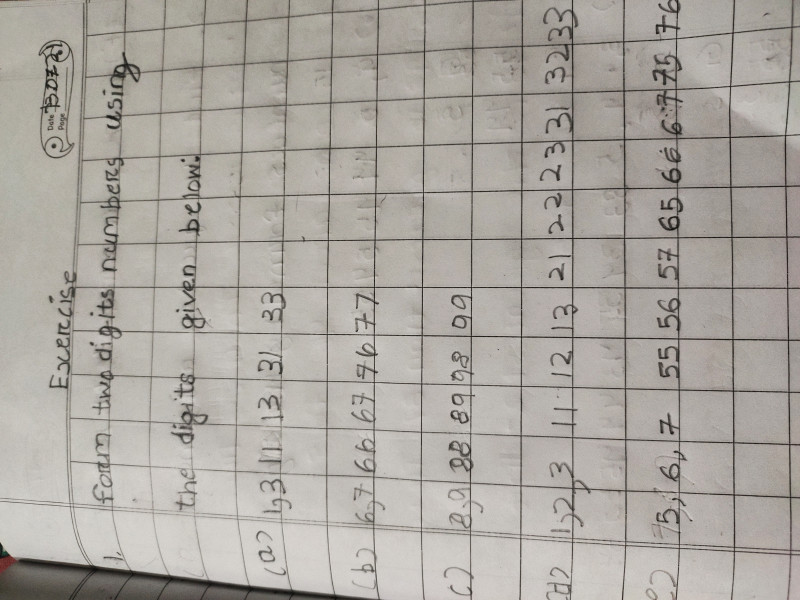 Date
Page
Exercise
1. form two digits numbers using
the digits given below.
(a) 1,3 11 13 31 33
(b) 6,7 66 67 76 77
c) 8,9 88 89 98 99
d) 1,2,3 11 12 13 21 22 23 31 32 33
e) 5,6,7 55 56 57 65 66 67 75 76